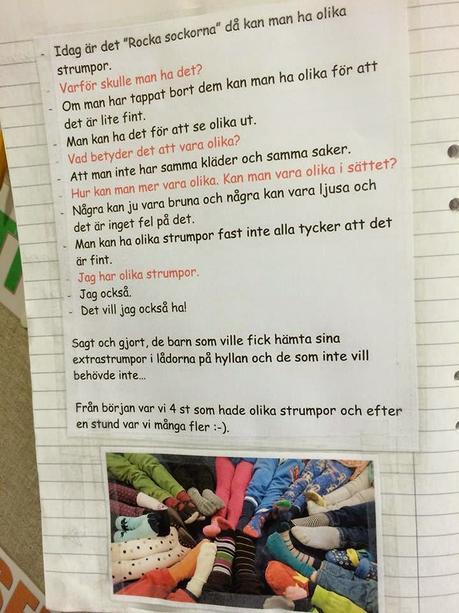 - Idag är det "Rocka sockorna" då kan man ha olika
strumpor.
Varför skulle man ha det?
- Om man har tappat bort dem kan man ha olika för att
det är lite fint.
- Man kan ha det för att se olika ut.
Vad betyder det att vara olika?
- Att man inte har samma kläder och samma saker.
Hur kan man mer vara olika. Kan man vara olika i sättet?
- Några kan ju vara bruna och några kan vara ljusa och
det är inget fel på det.
- Man kan ha olika strumpor fast inte alla tycker att det
är fint.
- Jag har olika strumpor.
- Jag också.
- Det vill jag också ha!
Sagt och gjort, de barn som ville fick hämta sina
extrastrumpor i lådorna på hyllan och de som inte vill
behövde inte...
Från början var vi 4 st som hade olika strumpor och efter
en stund var vi många fler :-).